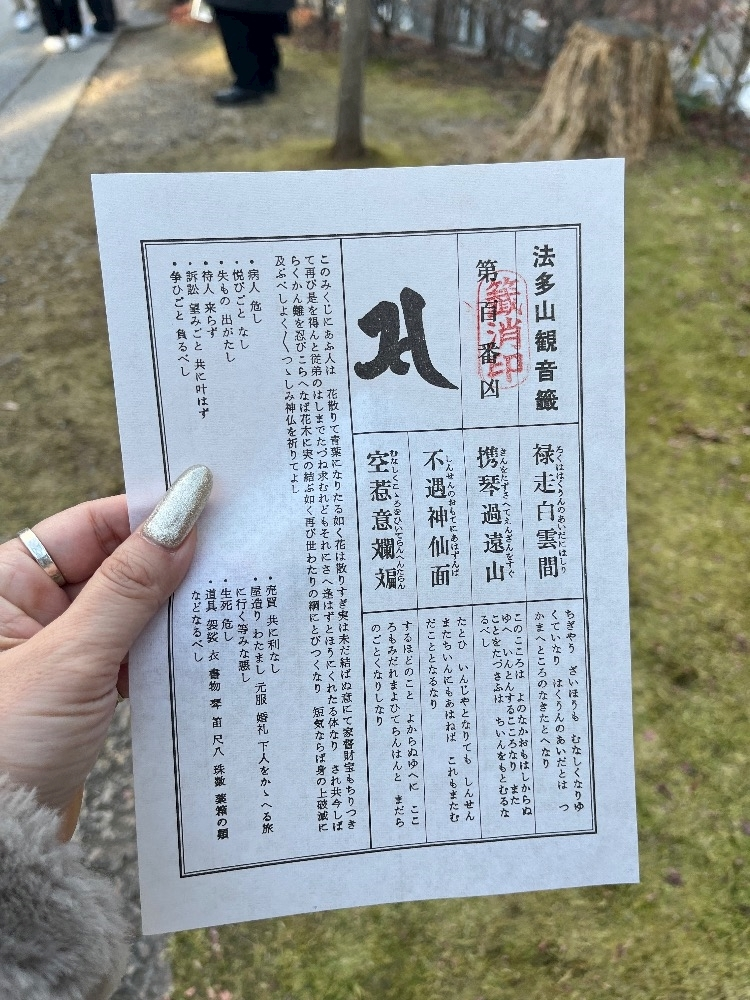 法多山観音籤
第百番凶
籤消印
禄走白雲間
ろくははくうんのあいだにはしり
携琴過遠山
きんをたずさへてえんざんをすぐ
不遇神仙面
しんせんのおもてにあはずんば
空惹意爛斒
むなしくこゝろをひいてらんへんたらん
ちぎやう ざいほうも むなしくなりゆ
くていなり はくうんのあいだとは つ
かまへところのなきたとへなり
このこころは よのなかおもはしからぬ
ゆへ いんとんするこころなり また
ことをたづさふは ちいんをもとむるな
るべし
たとひ いんじやとなりても しんせん
またちいんにもあはねば これもまたむ
だこととなるなり
するほどのこと よからぬゆへに ここ
ろもみだれまよひてらんはんと まだら
のごとくなりしなり
このみくじにあふ人は 花散りて青葉になりたる如く花は散りすぎ実は未だ結ばぬ意にて家督財宝もちりつき
て再び是を得んと従弟のはしまでたづね求むれどもそれにさへ逢はずとほうにくれたる体なり され共今しば
らくかん難を忍びこらへなば花木に実の結ぶ如く再び世わたりの綱にとびつくなり 短気ならば身の上破滅に
及ぶべしよく〳〵つゝしみ神仏を祈りてよし
・病人 危し
・悦びごと なし
・失もの 出がたし
・待人 来らず
・訴訟 望みごと 共に叶はず
・争ひごと 負るべし
・売買 共に利なし
・屋造り わたまし 元服 婚礼 下人をかゝへる旅
に行く等みな悪し
・生死 危し
・道具 袈裟 衣 書物 琴 笛 尺八 珠数 薬箱の類
などなるべし